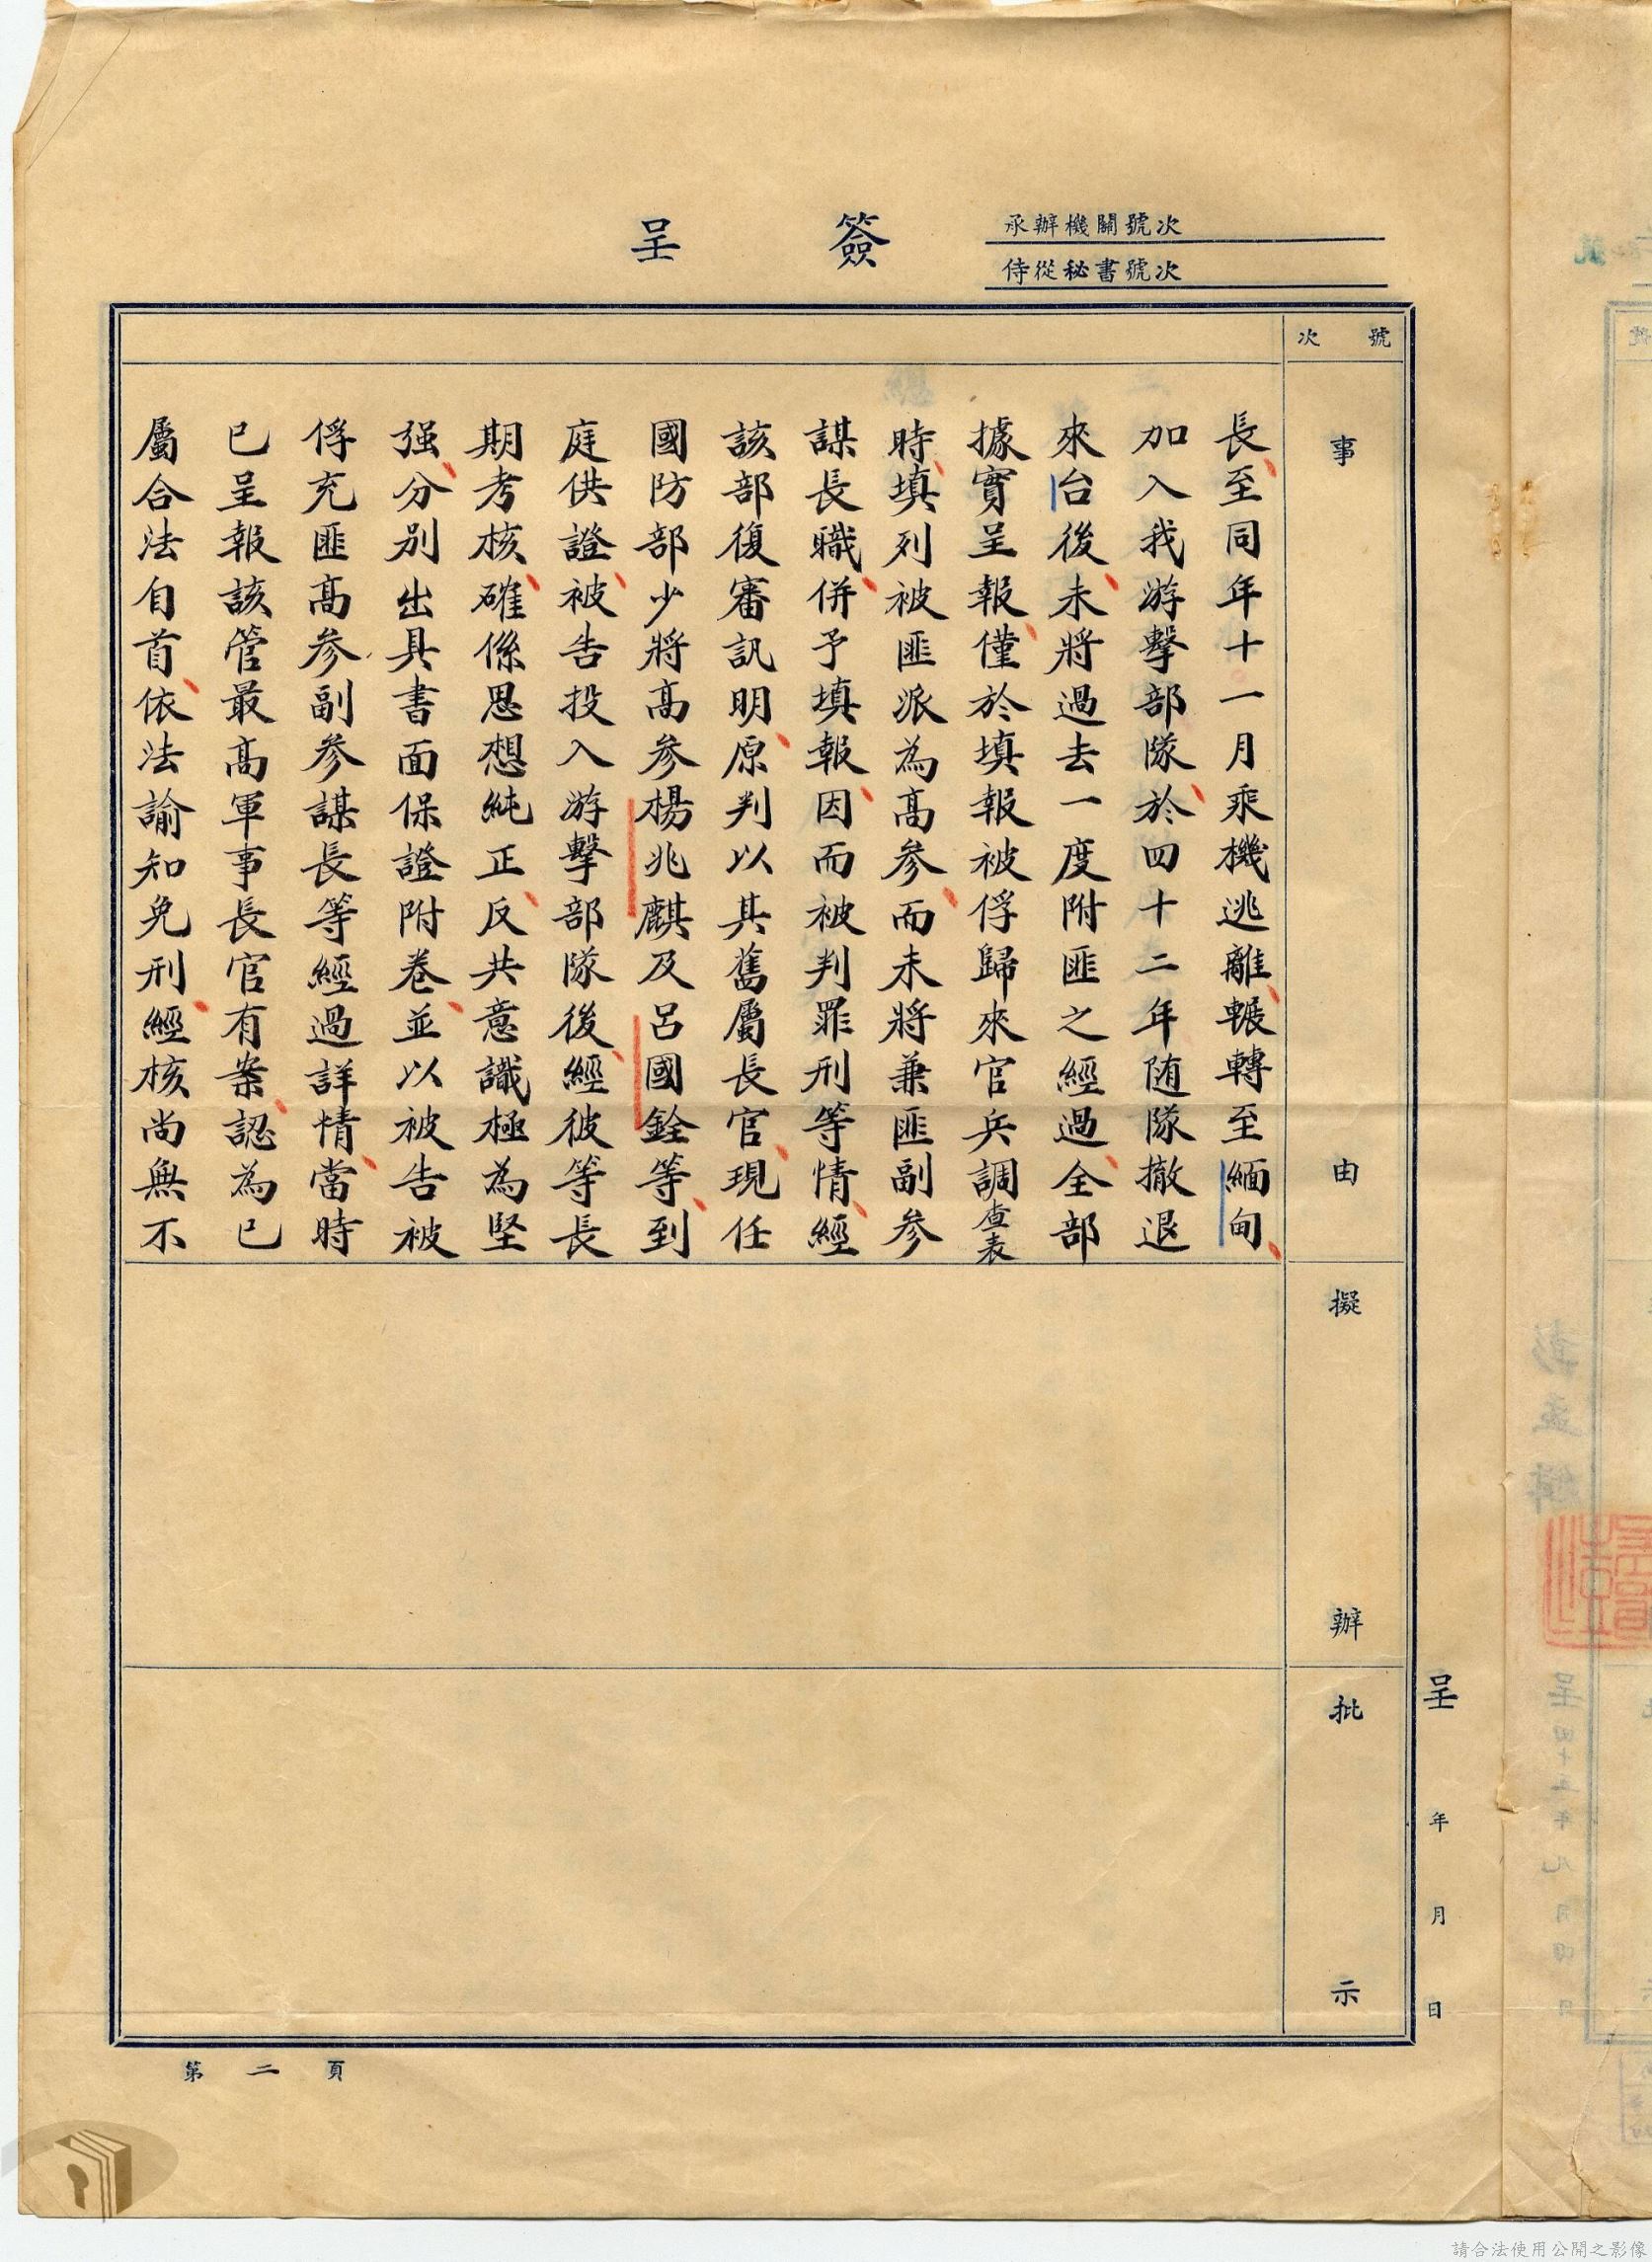 簽呈
承辦機關號次
侍從秘書號次
號次
事由
擬辦
批示
長、至同年十一月乘機逃離、輾轉至緬甸、
加入我游擊部隊、於四十二年随隊撤退
來台後、未將過去一度附匪之經過、全部
據實呈報、僅於填報被俘歸來官兵調查表
時、填列被匪派為高參、而未將兼匪副參
謀長職、併予填報、因而被判罪刑等情、經
該部復審訊明、原判以其舊屬長官、現任
國防部少將高參楊兆麒及呂國銓等、到
庭供證、被告投入游擊部隊後、經彼等長
期考核、確係思想純正、反共意識極為堅
强、分別出具書面保證附卷、並以被告被
俘充匪高参副参謀長等經過詳情、當時
已呈報該管最高軍事長官有案、認為已
屬合法自首、依法諭知免刑、經核尚無不
呈 年 月 日
第二頁
彭孟緝
呈四十五年九月四日
請合法使用公開之影像